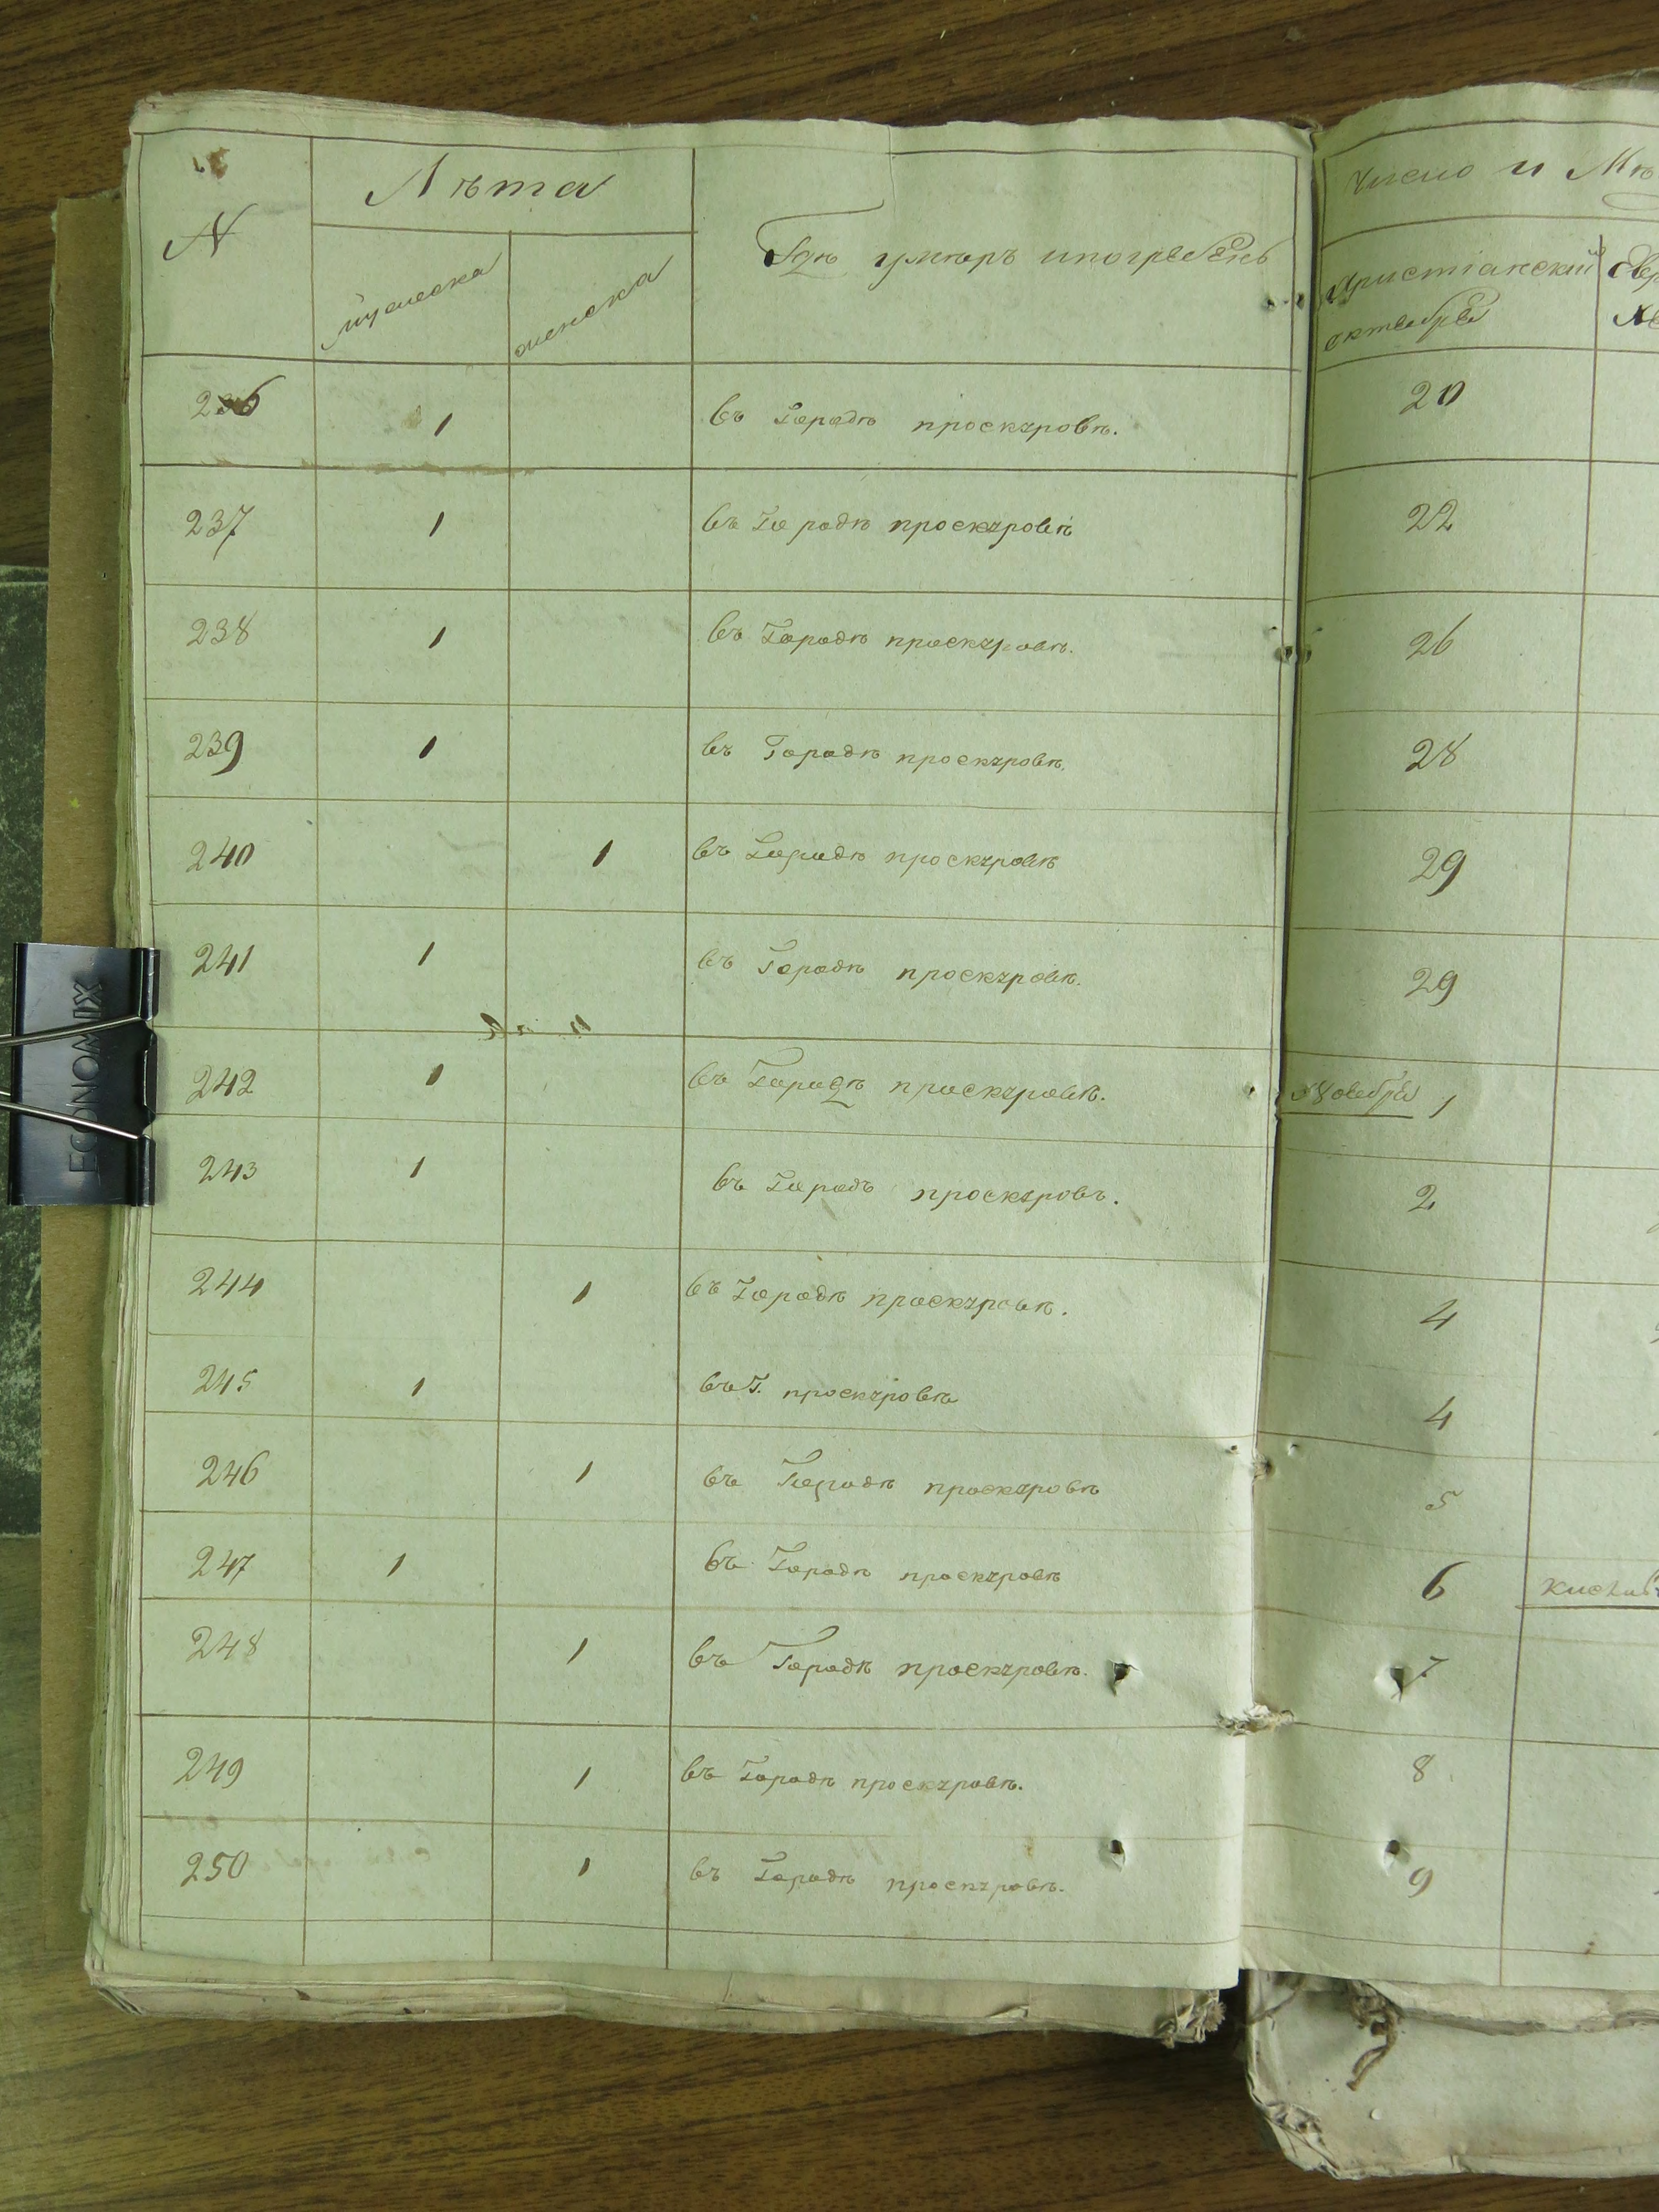 N Лѣта Гдѣ умѣръ и погребенъ
мужеска женска
236 1 въ Городѣ проскуровѣ.
237 1 въ Городѣ проскуровѣ
238 1 въ Городѣ проскуровѣ.
239 1 въ Городѣ проскуровѣ.
240 1 въ Городѣ проскуровѣ
241 1 въ Городѣ проскуровѣ.
242 1 въ Городѣ проскуровѣ.
243 1 въ Городѣ проскуровъ.
244 1 въ Городѣ проскуровѣ.
245 1 въ Г. проскуровѣ
246 1 въ Городѣ проскуровѣ
247 1 въ Городѣ проскуровѣ
248 1 въ Городѣ проскуровѣ.
249 1 въ Городѣ проскуровѣ.
250 1 въ Городѣ проскуровѣ.
Число и Мѣ
Христіанскій Евр
октебра
20
22
26
28
29
29
Новебра 1
2
4
4
5
6 кислив
7
8
9
ECONOMIX